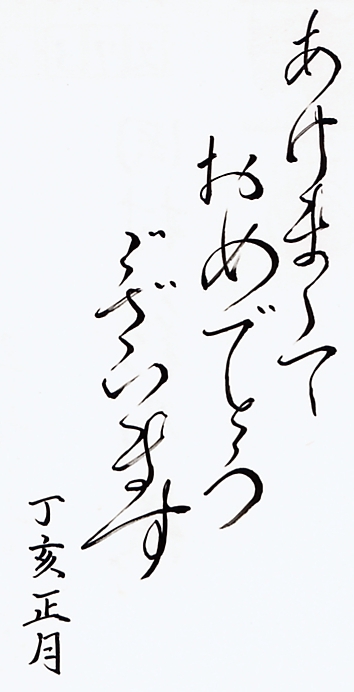 あけまして
おめでとう
ございます
丁亥正月